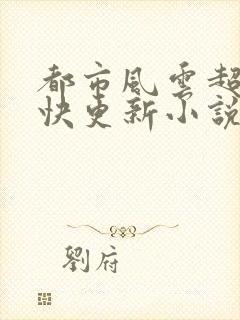 都市风云超
快更新小說
劉府